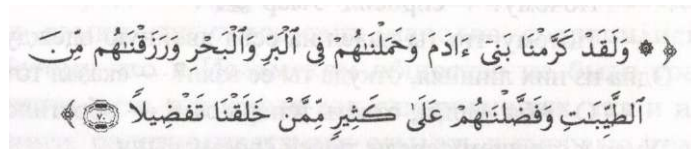 ﴿ ۞ وَلَقَدْ كَرَّمْنَا بَنِىٓ ءَادَمَ وَحَمَلْنَٰهُمْ فِى ٱلْبَرِّ وَٱلْبَحْرِ وَرَزَقْنَٰهُم مِّنَ
ٱلطَّيِّبَٰتِ وَفَضَّلْنَٰهُمْ عَلَىٰ كَثِيرٍ مِّمَّنْ خَلَقْنَا تَفْضِيلًا ٧٠ ﴾